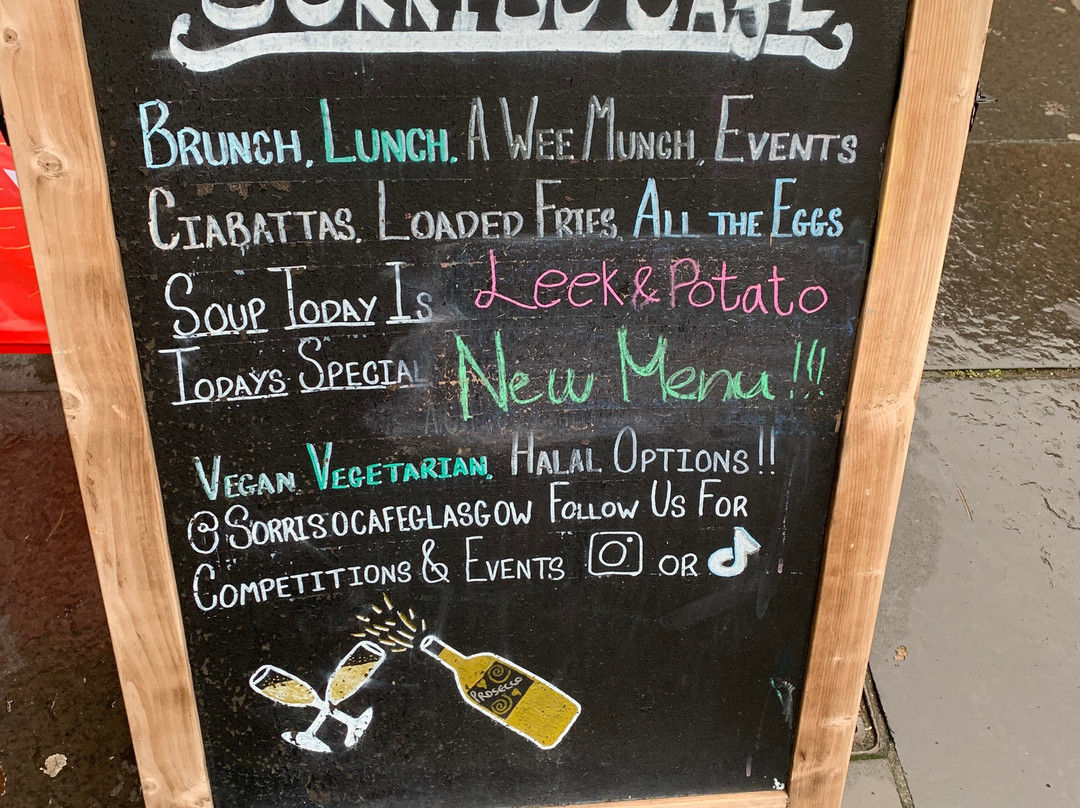 SORRISO CAFE
BRUNCH, LUNCH, A WEE MUNCH, EVENTS
CIABATTAS, LOADED FRIES, ALL THE EGGS
SOUP TODAY IS Leek & Potato
TODAYS SPECIAL New Menu !!!
VEGAN, VEGETARIAN, HALAL OPTIONS!!
@SORRISOCAFEGLASGOW FOLLOW US FOR
COMPETITIONS & EVENTS OR
PROSECCO